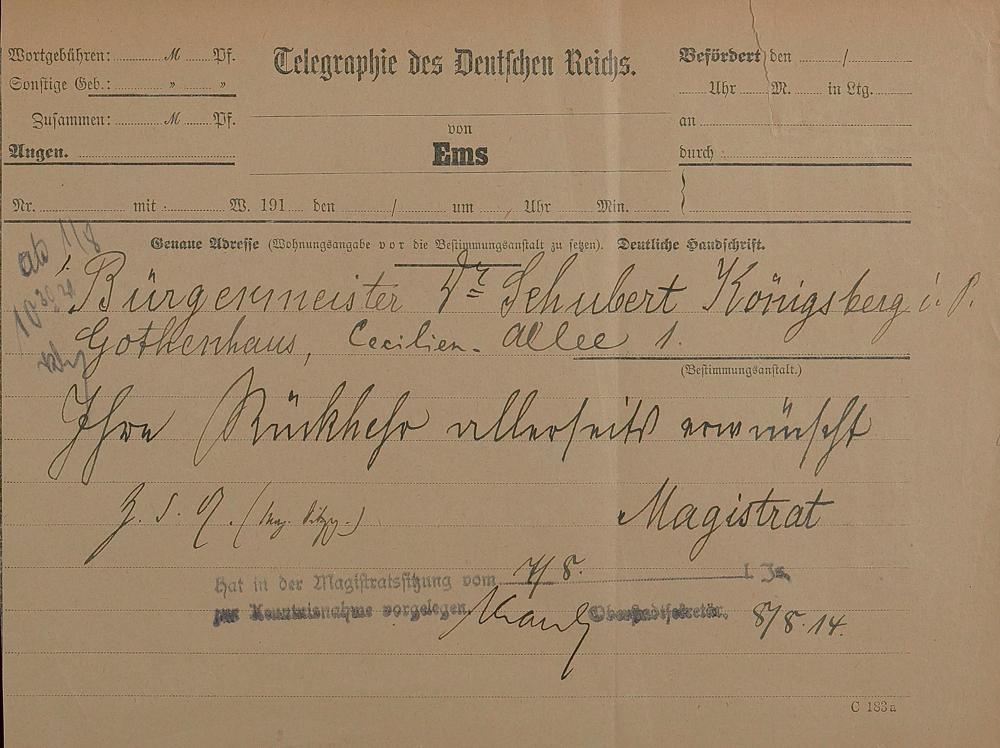 Wortgebühren: M Pf.
Sonstige Geb.: " "
Zusammen: M Pf.
Angen.
Telegraphie des Deutschen Reichs.
von
Ems
Befördert den /
Uhr M. in Ltg.
an
durch
Nr. mit W. 191 den / um Uhr Min.
Genaue Adresse (Wohnungsangabe vor die Bestimmungsanstalt zu setzen). Deutliche Handschrift.
ab 1/8
10
Bürgermeister Dr Schubert Königsberg i. P.
Gothenhaus, Cecilien-Allee 1.
(Bestimmungsanstalt.)
Ihre Rückkehr allerseits erwünscht
Magistrat
Z. d. A. (Mag. Sitzg.)
Hat in der Magistratssitzung vom 7/8. l. Js.
zur Kenntnisnahme vorgelegen.
Oberstadtsekretär. 8/8.14.
C 183a